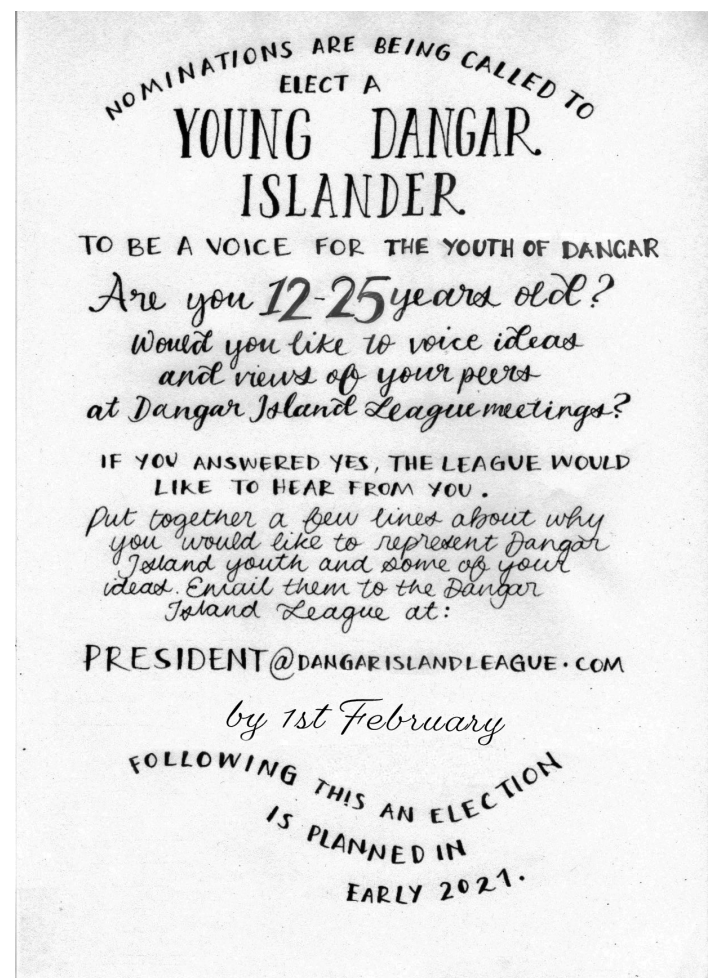 NOMINATIONS ARE BEING CALLED TO
ELECT A
YOUNG DANGAR
ISLANDER
TO BE A VOICE FOR THE YOUTH OF DANGAR
Are you 12-25 years old?
Would you like to voice ideas
and views of your peers
at Dangar Island League meetings?
IF YOU ANSWERED YES, THE LEAGUE WOULD
LIKE TO HEAR FROM YOU.
Put together a few lines about why
you would like to represent Dangar
Island youth and some of your
ideas. Email them to the Dangar
Island League at:
PRESIDENT@DANGARISLANDLEAGUE.COM
by 1st February
FOLLOWING THIS AN ELECTION
IS PLANNED IN
EARLY 2021.